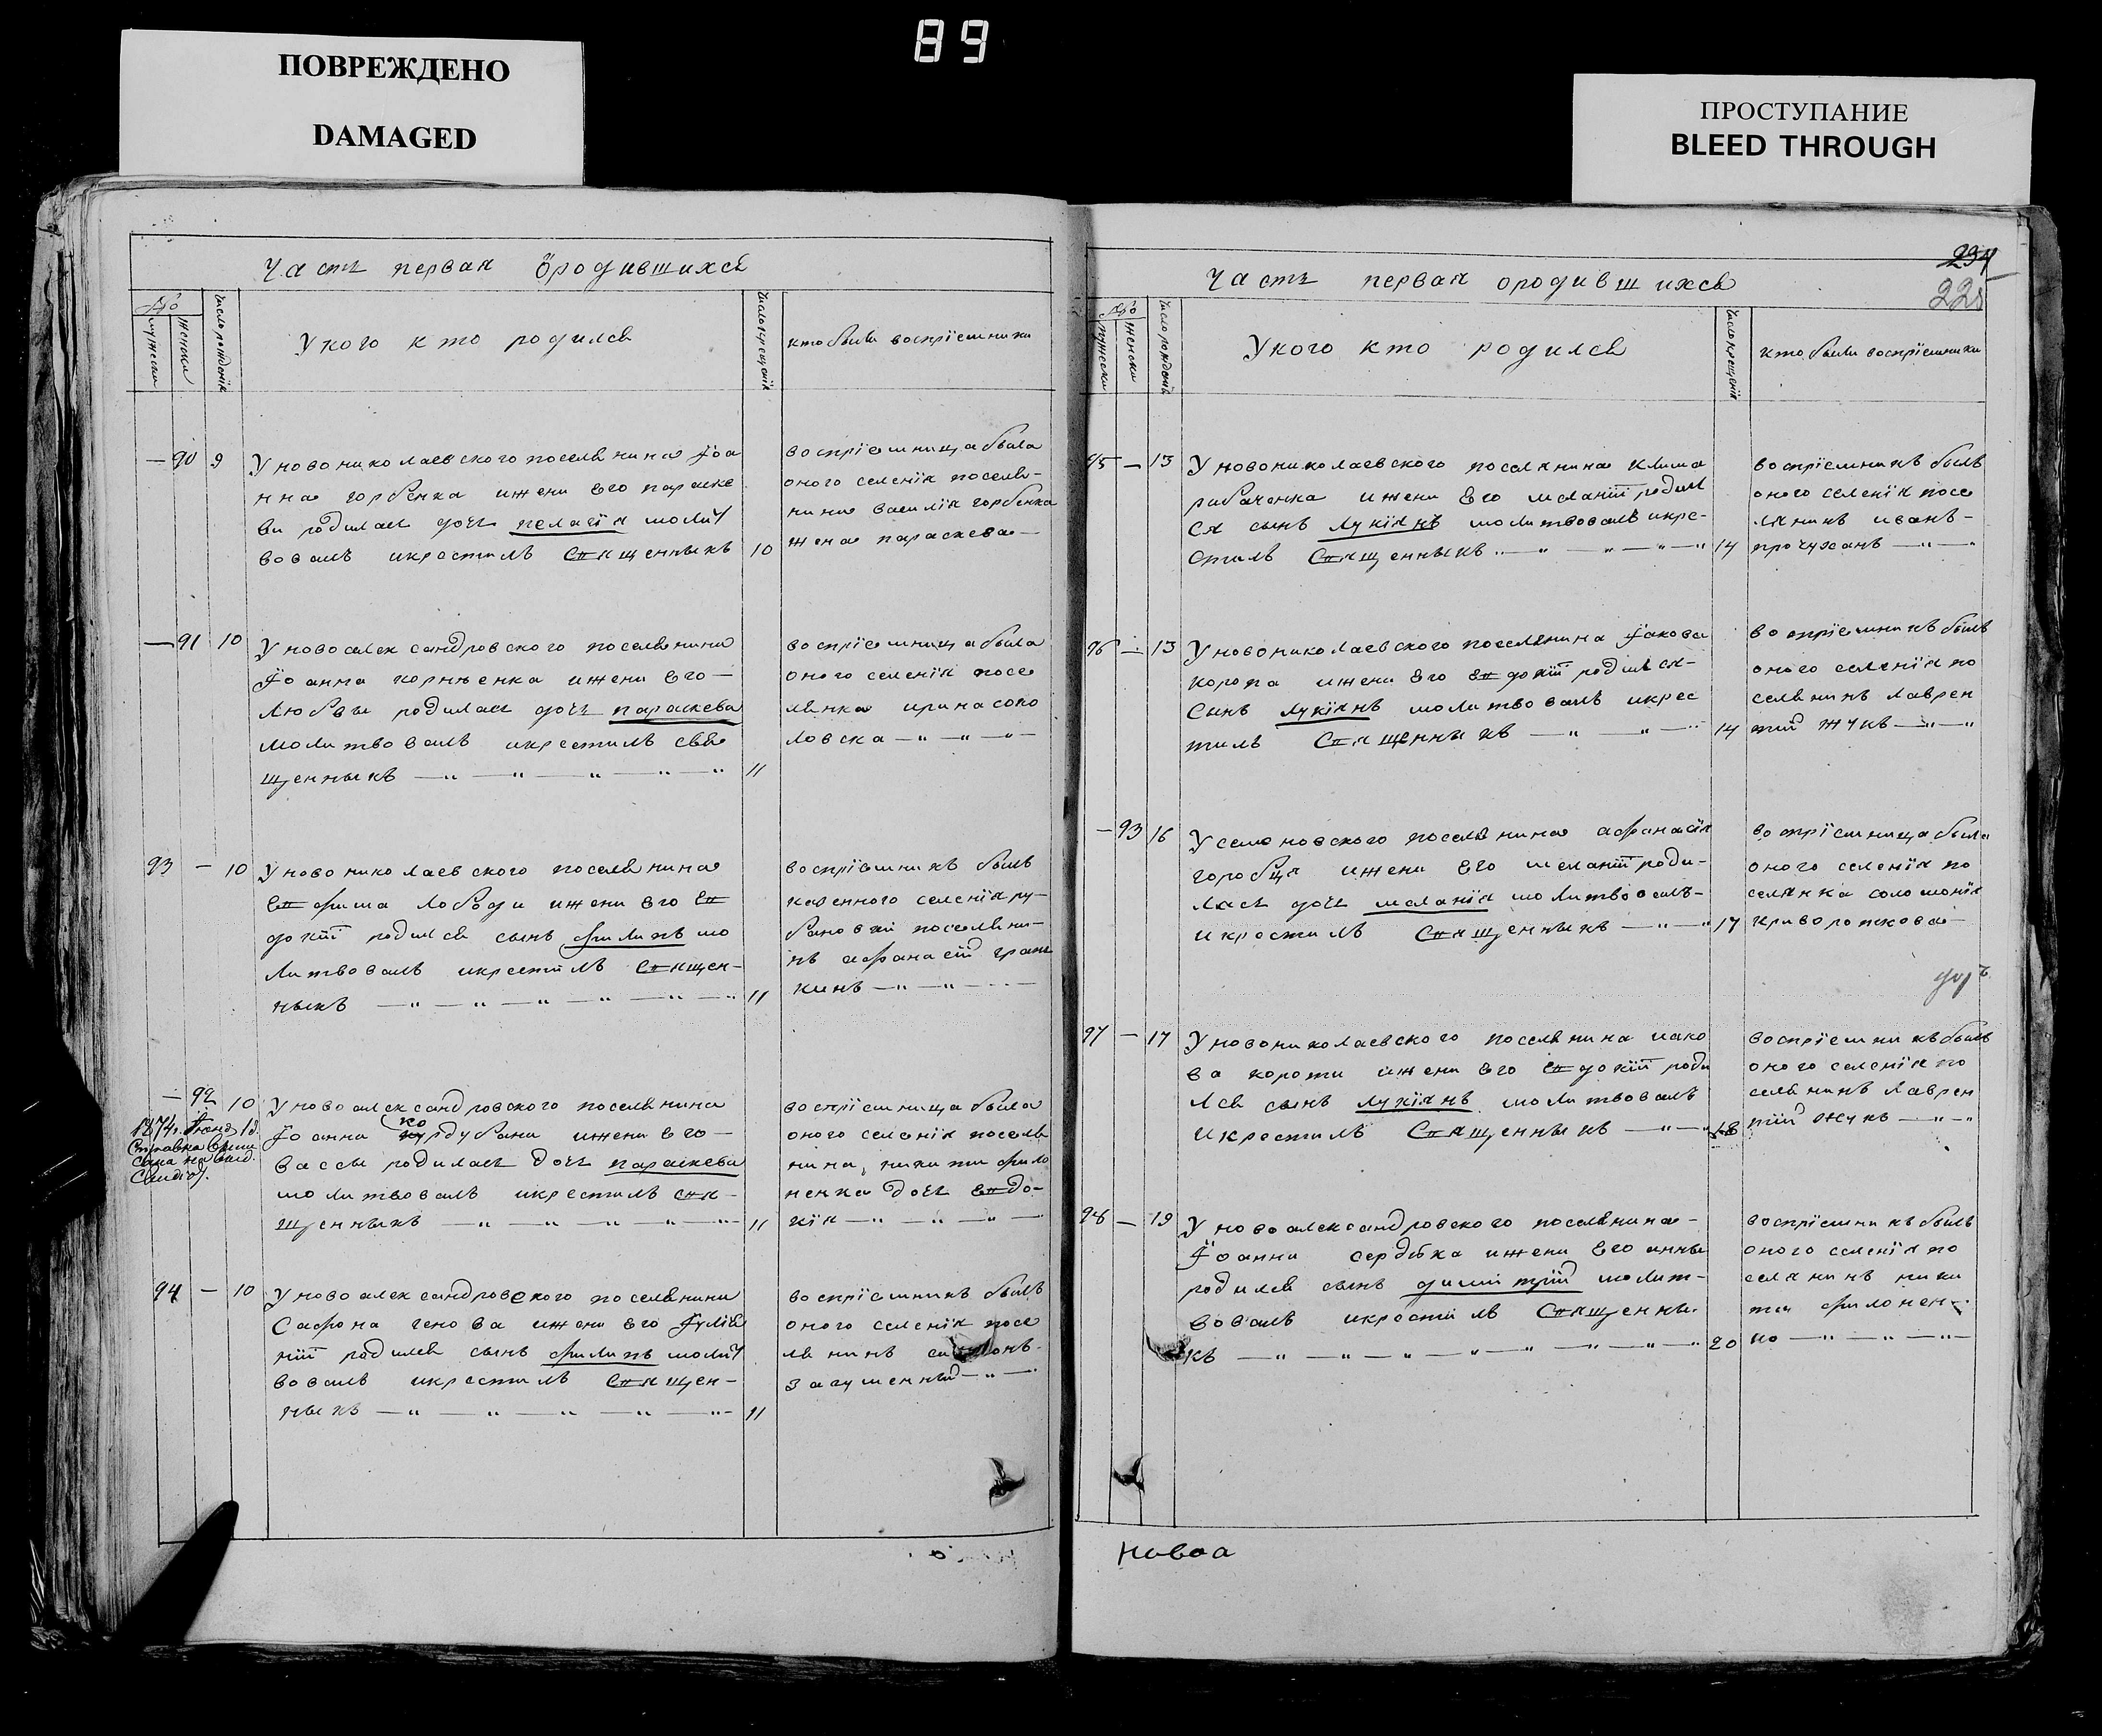 89
ПОВРЕЖДЕНО
DAMAGED
ПРОСТУПАНИЕ
BLEED THROUGH
Часть первая ородившихся
число рожденія
Укого кто родился
число крещенія
кто были воспріемники
— 90 9 У новониколаевского поселянина Іоа
нна горбенка ижени Его параске
ви родилась дочь пелагія молит
вовалъ икрестилъ Священныкъ 10
воспріемница была
оного селенія поселя-
нина василія горбенка
жена параскева —
— 91 10 У новоалександровского поселянина
Іоанна корнѣенка ижени Его —
Любвы родилась дочь параскева
молитвовалъ икрестилъ свя
щенныкъ — " — " — " — " — " 11
воспріемница была
оного селенія посе
лянка ирина соко
ловска — " — " — " —
93 — 10 У новониколаевского поселянина
Евфима Лободи ижени Его Ев
докіи родился сынъ филипъ мо
литвовалъ икрестилъ Священ-
ныкъ — " — " — " — " — " — " 11
воспріемникъ былъ
казенного селенія ру-
бановки поселяни-
нъ афанасій
кинъ — " — " —
— 92 10 У новоалександровского поселянина
Іоанна кордубана ижени Его —
вассы родилась дочь параскева
молитвовалъ икрестилъ свя-
щенныкъ — " — " — " — " — " 11
1874.
Справка
воспріемница была
оного селенія поселя
нина, никити фило
ненка дочь Евдо-
кія — " — " — " —
94 — 10 У новоалександровского поселянина
Сафона ижени Его Іулія
ніи родился сынъ филипъ молит
вовалъ икрестилъ Священ-
ныкъ — " — " — " — " — " 11
воспріемникъ былъ
оного селенія посе
лянинъ
Часть первая ородившихся
234
число рожденія
Укого кто родился
число крещенія
кто были воспріемники
95 — 13 У новониколаевского поселянина клима
рибаченка ижени Его меланіи родил
ся сынъ лукіянъ молитвовалъ икре-
стилъ Священныкъ — " — " — " — " 14
воспріемникъ былъ
оного селенія посе
лянинъ иванъ —
прочуханъ — " —
96 — 13 У новониколаевского поселянина Іакова
коропа ижени Его Евдокіи родился —
Сынъ лукіянъ молитвовалъ икрес
тилъ Священныкъ — " — " — " 14
воспріемникъ былъ
оного селенія по
селянинъ лаврен
тій жукъ — " — "
— 93 16 У семеновского поселянина афанасія
горобця ижени Его меланіи роди-
лась дочь меланія молитвовалъ —
икрестилъ Священныкъ — " — " 17
воспріемница была
оного селенія по
селянка соломонія
криворотькова —
97 — 17 У новониколаевского поселянина иако
ва коропи ижени Его Евдокіи роди
лся сынъ лукіянъ молитвовалъ
икрестилъ Священныкъ — " — " 18
воспріемникъ былъ
оного селенія по
селянинъ лаврен
тій жукъ — " — "
98 — 19 У новоалександровского поселянина —
Іоанна сердюка ижени Его анны
родился сынъ димитрій молит-
вовалъ икрестилъ Священны-
къ — " — " — " — " — " — " — " 20
воспріемникъ былъ
оного селенія по
селянинъ ники
та филонен-
ко — " — " — " —